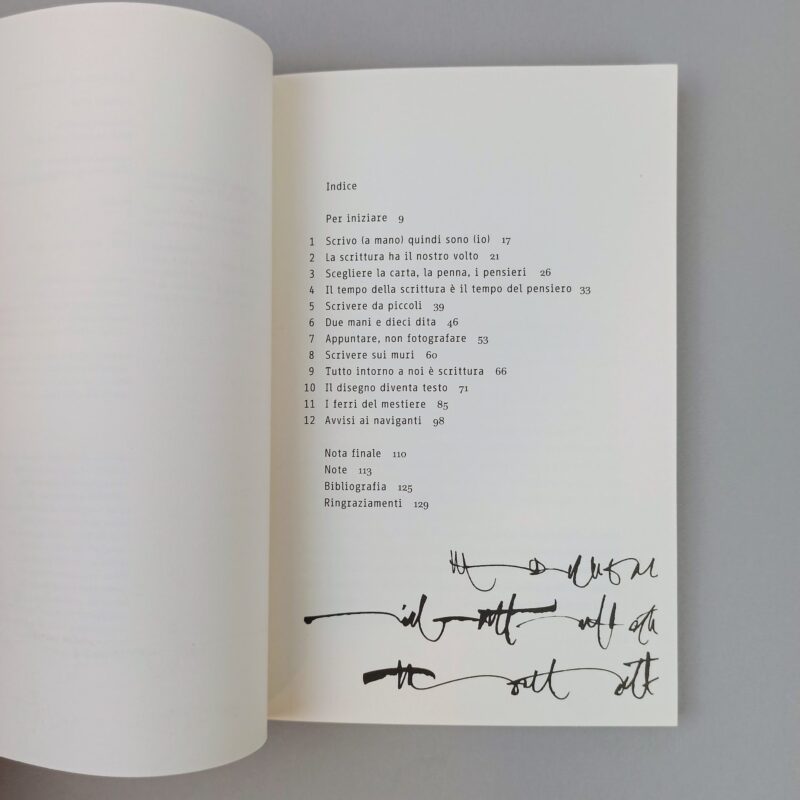 Indice
Per iniziare 9
1 Scrivo (a mano) quindi sono (io) 17
2 La scrittura ha il nostro volto 21
3 Scegliere la carta, la penna, i pensieri 26
4 Il tempo della scrittura è il tempo del pensiero 33
5 Scrivere da piccoli 39
6 Due mani e dieci dita 46
7 Appuntare, non fotografare 53
8 Scrivere sui muri 60
9 Tutto intorno a noi è scrittura 66
10 Il disegno diventa testo 71
11 I ferri del mestiere 85
12 Avvisi ai naviganti 98
Nota finale 110
Note 113
Bibliografia 125
Ringraziamenti 129